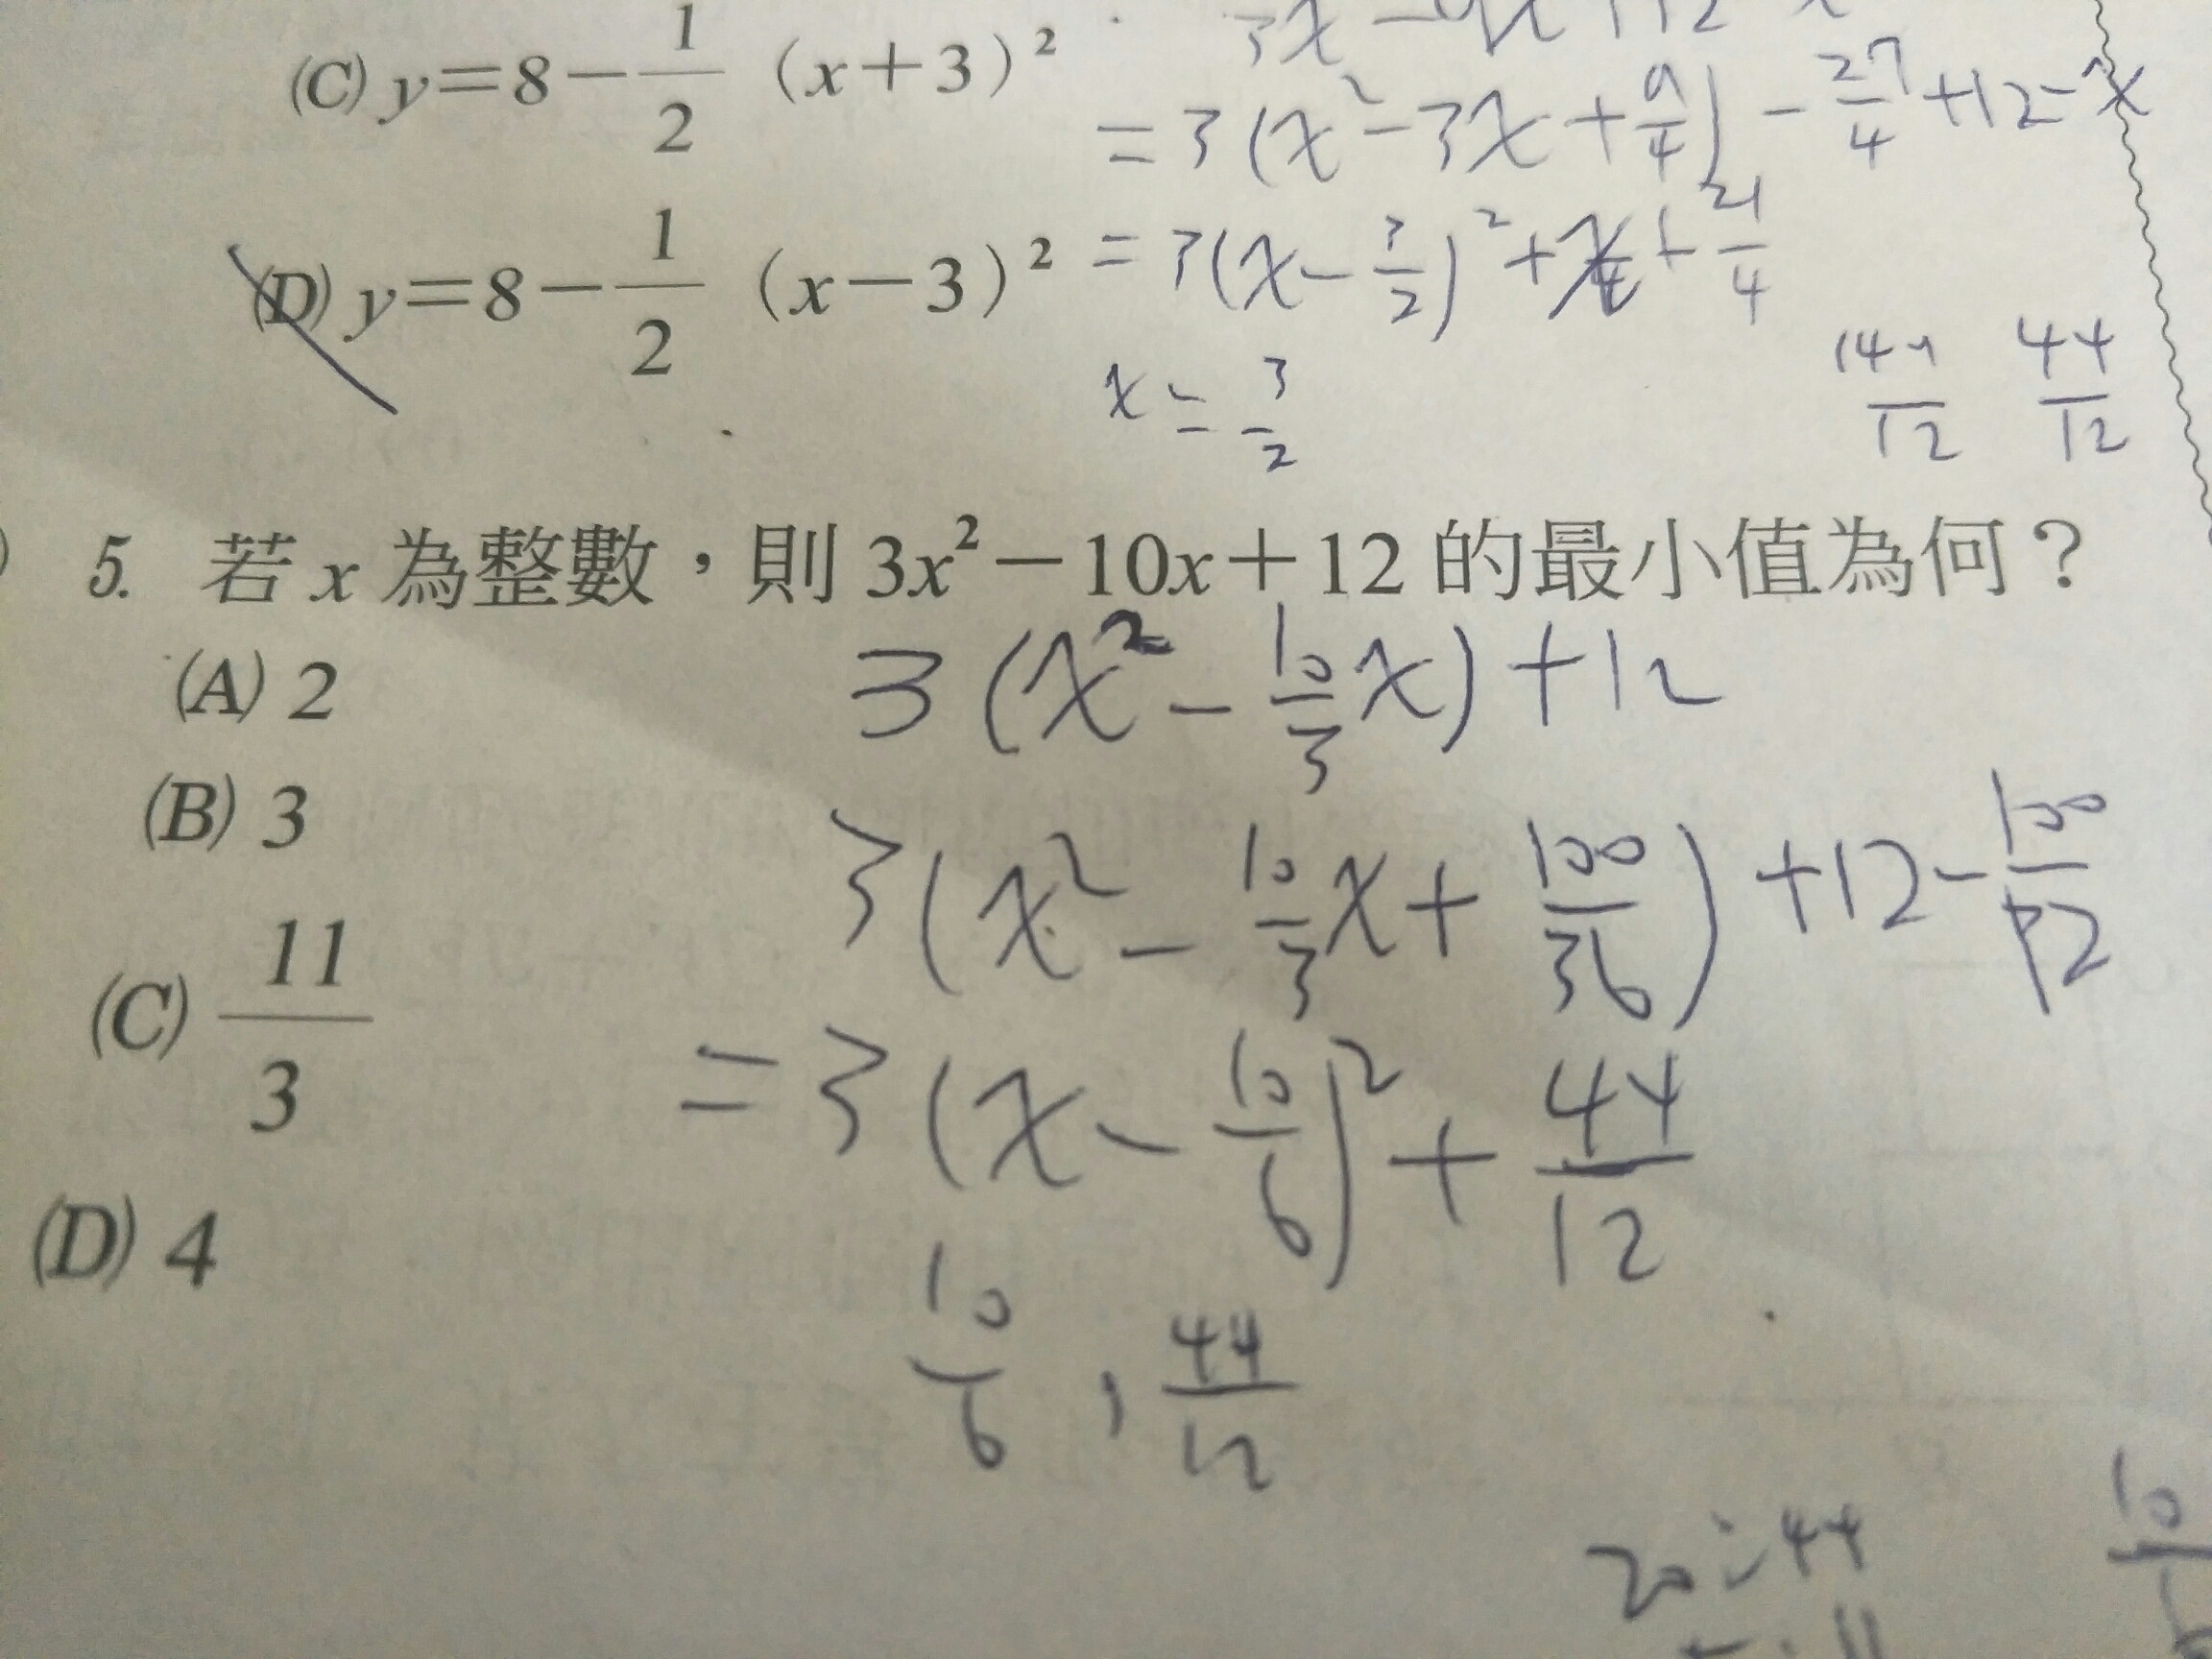 (C) y=8－1/2 (x＋3)²
(D) y=8－1/2 (x－3)²
=3(x²-3x+9/4)-27/4+12-x
=3(x-3/2)²+ +21/4
x=3/2
144/12 44/12
5. 若 x 為整數，則 3x²－10x＋12 的最小值為何？
3(x²-10/3x)+12
(A) 2
(B) 3
3(x²-10/3x+100/36)+12-100/12
(C) 11/3
=3(x-10/6)²+44/12
(D) 4
10/6 , 44/12
20:44